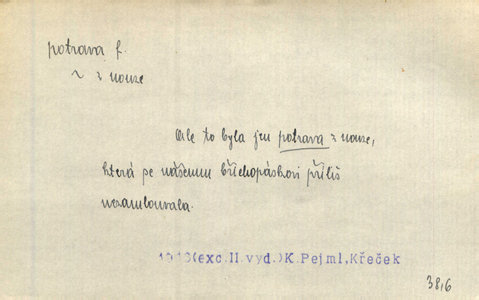 potrava f.
~ z nouze
Ale to byla jen potrava z nouze,
která se našemu břichopáskovi příliš
nezamlouvala.
1918(exc.II.vyd.)K.Pejml,Křeček
38,6